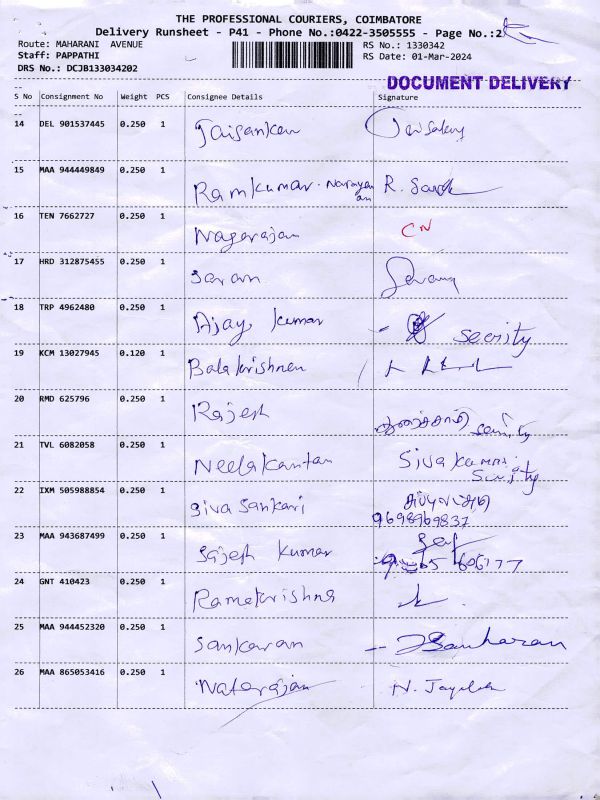 THE PROFESSIONAL COURIERS, COIMBATORE
Delivery Runsheet - P41 - Phone No.:0422-3505555 - Page No.:2
Route: MAHARANI AVENUE RS No.: 1330342
Staff: PAPPATHI RS Date: 01-Mar-2024
DRS No.: DCJB133034202
DOCUMENT DELIVERY
S No Consignment No Weight PCS Consignee Details Signature
14 DEL 901537445 0.250 1 Jaisankar
15 MAA 944449849 0.250 1 Ramkumar. Narayanan R.
16 TEN 7662727 0.250 1 Nagarajan CN
17 HRD 312875455 0.250 1 Saran
18 TRP 4962480 0.250 1 Ajay kumar Secrity
19 KCM 13027945 0.120 1 Balakrishnen
20 RMD 625796 0.250 1 Rajesh
21 TVL 6082058 0.250 1 Neelakantan Sivakumar
22 IXM 505988854 0.250 1 Siva Sankari
9698969837
23 MAA 943687499 0.250 1 Sajesh Kumar
24 GNT 410423 0.250 1 Ramakrishna
25 MAA 944452320 0.250 1 Sankaran Sankaran
26 MAA 865053416 0.250 1 Natarajan N.